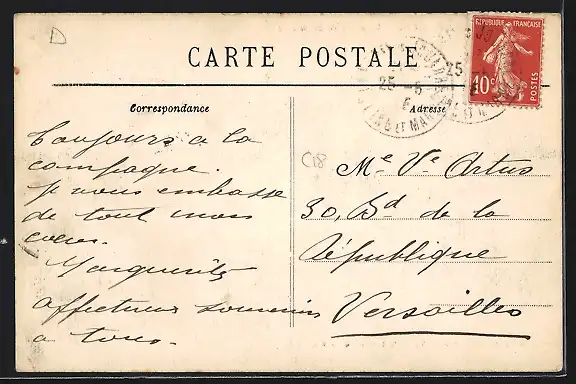 D
CARTE POSTALE
RÉPUBLIQUE FRANÇAISE
10c
POSTES
25
25 - 5
ET MAR
Correspondance
Adresse
Toujours a la
campagne.
Je vous embrasse
de tout mon
coeur.
Marguerite
affectueux souvenir
a tous.
C18
Me Ve Artus
30, Bd de la
République
Versailles